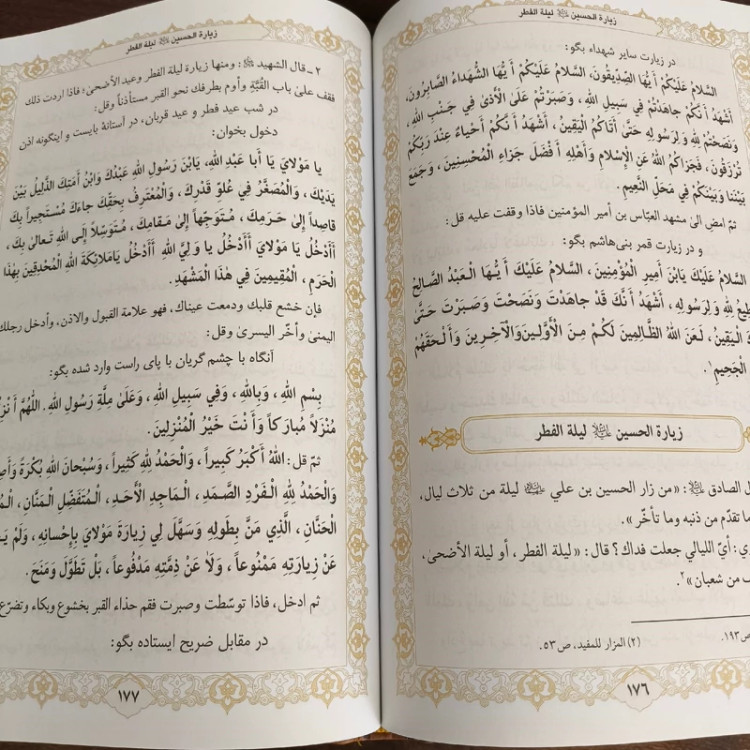 زيارة الحسين ﷺ ليلة الفطر
در زيارت ساير شهداء بگو:
السَّلامُ عَلَيْكُمْ أَيُّهَا الصِّدِّيقُونَ، السَّلامُ عَلَيْكُمْ أَيُّهَا الشُّهَداءُ الصَّابِرُونَ،
أَشْهَدُ أَنَّكُمْ جاهَدْتُمْ فِي سَبِيلِ اللهِ، وَصَبَرْتُمْ عَلَىٰ الْأَذىٰ فِي جَنْبِ اللهِ،
وَنَصَحْتُمْ لِلّٰهِ وَلِرَسُولِهِ حَتَّىٰ أَتَاكُمُ الْيَقِينُ، أَشْهَدُ أَنَّكُمْ أَحْياءٌ عِنْدَ رَبِّكُمْ
تُرْزَقُونَ، فَجَزَاكُمُ اللهُ عَنِ الْإِسْلامِ وَأَهْلِهِ أَفْضَلَ جَزاءِ الْمُحْسِنِينَ، وَجَمَعَ
بَيْنَنا وَبَيْنَكُمْ فِي مَحَلِّ النَّعِيمِ.
ثمّ امضِ الى مشهد العبّاس بن أمير المؤمنين فاذا وقفت عليه قل:
و در زيارت قمر بنى‌هاشم بگو:
السَّلامُ عَلَيْكَ يَابْنَ أَمِيرِ الْمُؤْمِنِينَ، السَّلامُ عَلَيْكَ أَيُّهَا الْعَبْدُ الصَّالِحُ
لِلّٰهِ وَلِرَسُولِهِ، أَشْهَدُ أَنَّكَ قَدْ جاهَدْتَ وَنَصَحْتَ وَصَبَرْتَ حَتَّىٰ
الْيَقِينُ، لَعَنَ اللهُ الظَّالِمِينَ لَكُمْ مِنَ الْأَوَّلِينَ وَالْآخِرِينَ وَأَلْحَقَهُمْ
الْجَحِيمِ¹.
زيارة الحسين ﷺ ليلة الفطر
الصادق ﷺ: «من زار الحسين بن علي ﷺ ليلة من ثلاث ليال،
ما تقدّم من ذنبه وما تأخّر».
أيّ الليالي جعلت فداك؟ قال: «ليلة الفطر، أو ليلة الأضحى،
من شعبان»².
ص١٩٣.
(٢) المزار للمفيد، ص ٥٣.
١٧٦
زيارة الحسين ﷺ ليلة الفطر
٢ـ قال الشهيد ﷺ: ومنها زيارة ليلة الفطر وعيد الأضحى؛ فاذا اردت ذلك
فقف علىٰ باب القُبَّةِ وأوم بطرفك نحو القبر مستأذناً وقل:
در شب عيد فطر و عيد قربان، در آستانهٔ بايست و اينگونه اذن
دخول بخوان:
يا مَوْلايَ يَا أَبا عَبْدِ اللهِ، يَابْنَ رَسُولِ اللهِ عَبْدُكَ وَابْنُ أَمَتِكَ الذَّلِيلُ بَيْنَ
يَدَيْكَ، وَالْمُصَغَّرُ فِي عُلُوِّ قَدْرِكَ، وَالْمُعْتَرِفُ بِحَقِّكَ جاءَكَ مُسْتَجِيراً بِكَ
قاصِداً إِلىٰ حَرَمِكَ، مُتَوَجِّهاً إِلىٰ مَقامِكَ، مُتَوَسِّلاً إِلَى اللهِ تَعالىٰ بِكَ،
أَأَدْخُلُ يَا مَوْلايَ أَأَدْخُلُ يا وَلِيَّ اللهِ أَأَدْخُلُ يَا مَلائِكَةَ اللهِ الْمُحْدِقِينَ بِهٰذَا
الْحَرَمِ، الْمُقِيمِينَ فِي هٰذَا الْمَشْهَدِ.
فإن خشع قلبك ودمعت عيناك، فهو علامة القبول والاذن، وأدخل رجلك
اليمنىٰ وأخّر اليسرىٰ وقل:
آنگاه با چشم گريان با پاى راست وارد شده بگو:
بِسْمِ اللهِ، وَبِاللهِ، وَفِي سَبِيلِ اللهِ، وَعَلَىٰ مِلَّةِ رَسُولِ اللهِ. اللّٰهُمَّ
مُنْزَلاً مُبارَكاً وَأَنْتَ خَيْرُ الْمُنْزِلِينَ.
ثمّ قل: اللهُ أَكْبَرُ كَبِيراً، وَالْحَمْدُ لِلّٰهِ كَثِيراً، وَسُبْحانَ اللهِ بُكْرَةً
وَالْحَمْدُ لِلّٰهِ الْفَرْدِ الصَّمَدِ، الْماجِدِ الْأَحَدِ، الْمُتَفَضِّلِ الْمَنَّانِ،
الْحَنَّانِ، الَّذِي مَنَّ بِطَوْلِهِ وَسَهَّلَ لِي زِيارَةَ مَوْلايَ بِإِحْسانِهِ، وَلَمْ
عَنْ زِيارَتِهِ مَمْنُوعاً، وَلا عَنْ ذِمَّتِهِ مَدْفُوعاً، بَلْ تَطَوَّلَ وَمَنَحَ.
ثم ادخل، فاذا توسّطت وصبرت فقم حذاء القبر بخشوع وبكاء وتضرّع
در مقابل ضريح ايستاده بگو:
١٧٧